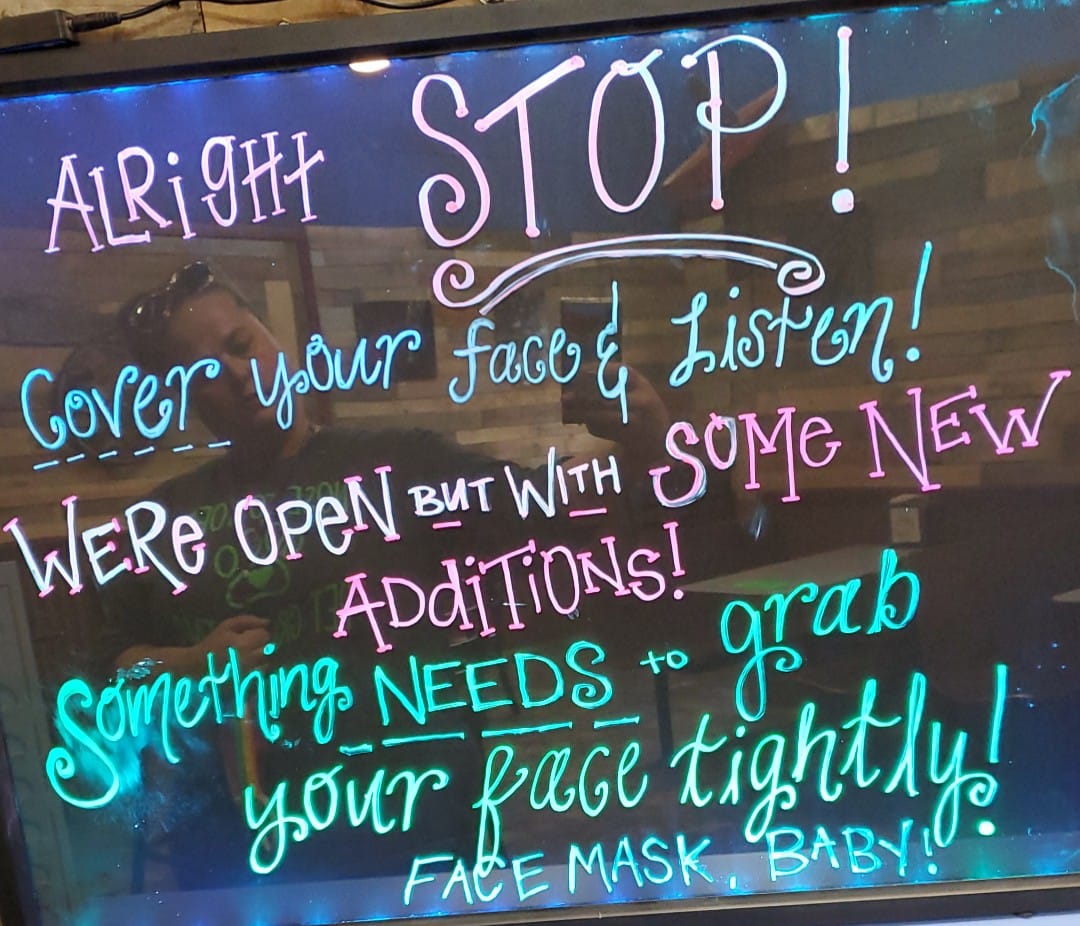 ALRighT STOP!
Cover your face & Listen!
WERe OPeN BUT WITH SOMe NEW
ADDiTiONS!
Something NEEDS to grab
your face tightly!
FACE MASK, BABY!